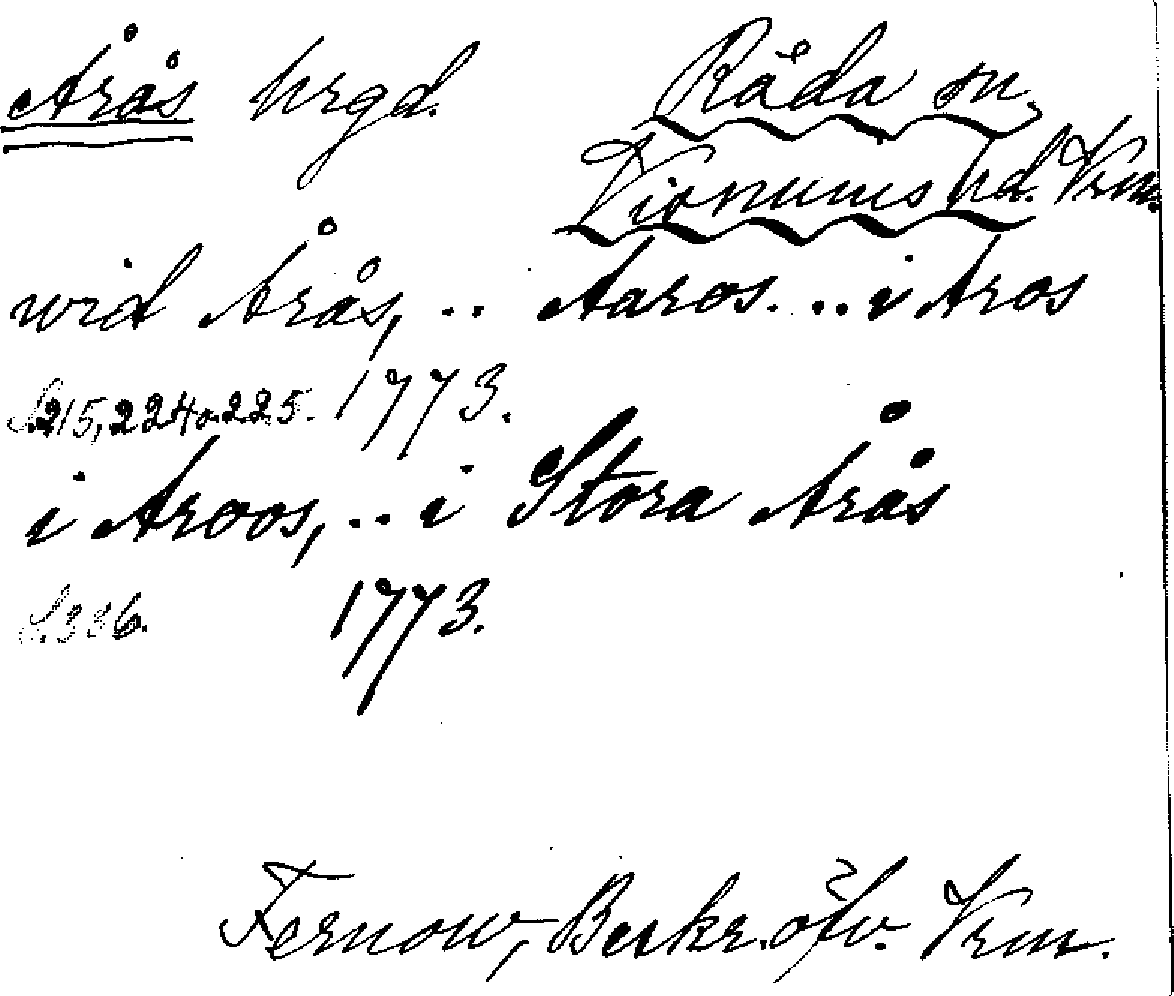 Årås hrgd. Råda sn,
Visnums hd. Vrm.
wid Årås, .. Aaros. .. i Aros
S. 215, 224 o. 225. 1773.
i Aroos, .. i Stora Årås
S. 336. 1773.
Fernow, Beskr. öfv. Vrm.